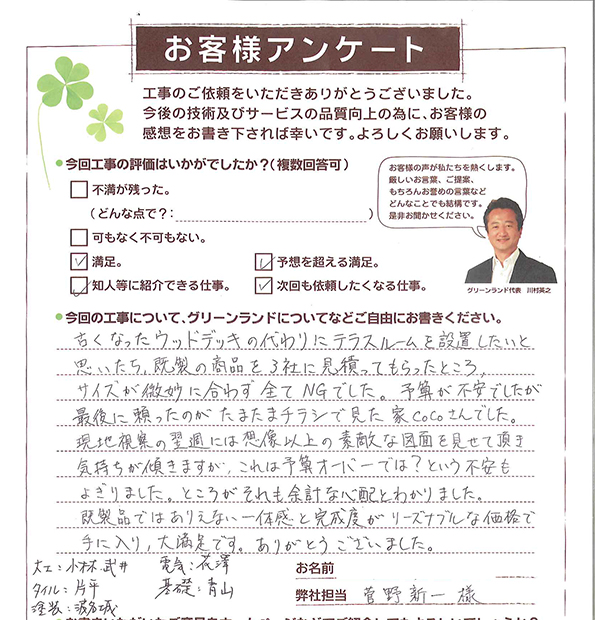 お客様アンケート
工事のご依頼をいただきありがとうございました。
今後の技術及びサービスの品質向上の為に、お客様の
感想をお書き下されば幸いです。よろしくお願いします。
●今回工事の評価はいかがでしたか？（複数回答可）
不満が残った。
（どんな点で？：　）
可もなく不可もない。
満足。
予想を超える満足。
知人等に紹介できる仕事。
次回も依頼したくなる仕事。
お客様の声が私たちを熱くします。
厳しいお言葉、ご提案、
もちろんお誉めの言葉など
どんなことでも結構です。
是非お聞かせください。
グリーンランド代表　川村英之
●今回の工事について、グリーンランドについてなどご自由にお書きください。
古くなったウッドデッキの代わりにテラスルームを設置したいと
思いたち、既製の商品を3社に見積ってもらったところ、
サイズが微妙に合わず全てNGでした。予算が不安でしたが
最後に頼ったのがたまたまチラシで見た家cocoさんでした。
現地視察の翌週には想像以上の素敵な図面を見せて頂き
気持ちが傾きますが、これは予算オーバーでは？という不安も
よぎりました。ところがそれも余計な心配とわかりました。
既製品ではありえない一体感と完成度がリーズナブルな価格で
手に入り、大満足です。ありがとうございました。
大工：小林 武井　電気：花澤
タイル：片平　基礎：青山
塗装：
お名前
弊社担当　菅野新一様